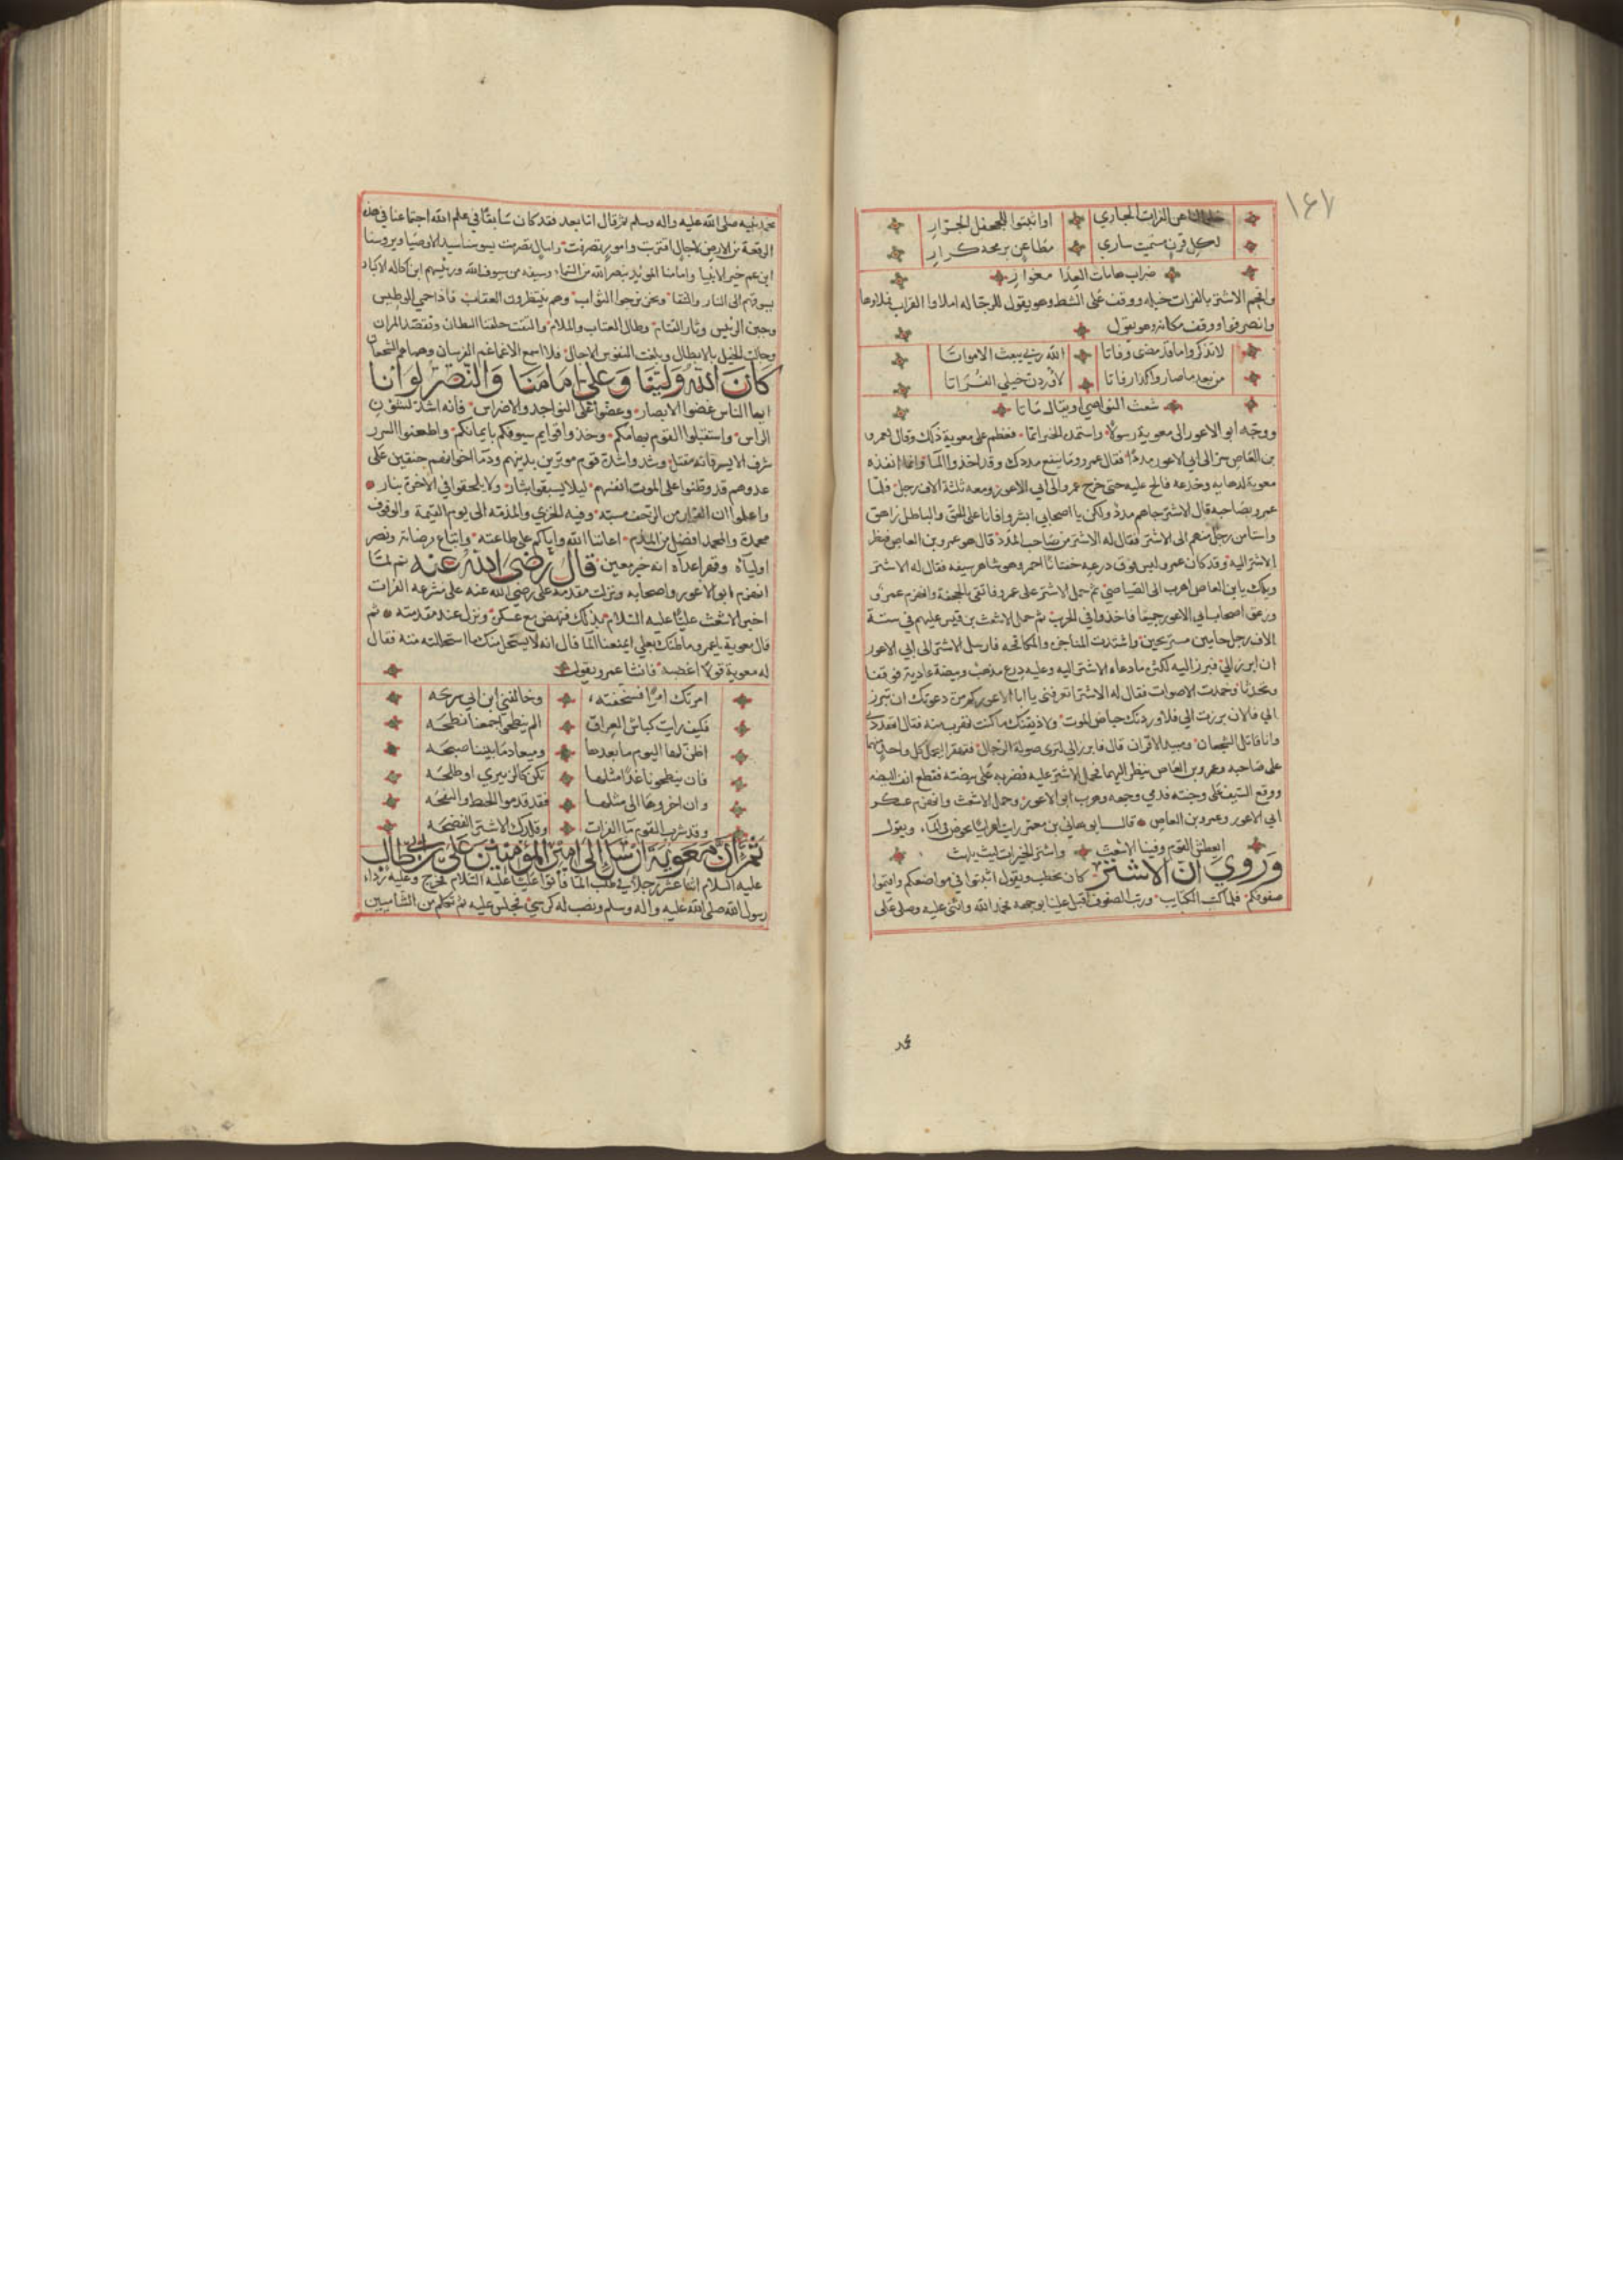 ١٤٧
خلوا لنا عن الفرات الجاري اوا ثبتوا للجحفل الجرّارِ
لكل قرن مستميت ساري مطاعن برمحه كرارِ
ضراب هامات العدا مغوارِ
واقحم الاشتر بالفرات خيله ووقف على الشط وهو يقول للرجاله املاوا القراب فملاوها
وانصرفوا ووقف مكانه وهو يقول
لا تذكروا ما قد مضى وفاتا الله ربي يبعث الامواتا
من بعد ما صاروا كذا رفاتا لأوردن خيلي الفراتا
شعث النواصي او يقال ماتا
ووجّه ابو الاعور الى معوية رسولا واستمده فعظم على معوية ذلك وقال لعمرو
بن العاص سر الى ابي الاعور مددًا فقال عمرو وما ينفع مددك وقد اخذوا الما وانما انفذه
معوية لدهايه وخدعه فالح عليه حتى خرج عمرو الى ابي الاعور ومعه ثلثة الاف رجل فلما
عمرو بصاحبه قال الاشتر جاهم مدد ولكن يا اصحابي ابشروا فانا على الحق والباطل زاهق
واستامن رجل منهم الى الاشتر فقال له الاشتر من صاحب المدد قال هو عمرو بن العاص فنظر
الاشتر اليه وقد كان عمرو لبس فوق درعه خفتانًا احمر وهو شاهر سيفه فقال له الاشتر
ويلك يا بن العاص اهرب الى الصياصي ثم حمل الاشتر على عمرو فاتقى بالجحفة وانهزم عمرو
وزعق اصحاب ابي الاعور جميعا فاخذوا في الحرب ثم حمل الاشعث بن قيس عليهم في ستة
الاف رجل حاميين مستريحين واشتدت المناجزه والمكافحه فارسل الاشتر الى ابي الاعور
ان ابرز اليّ فبرز اليه لكثره ما دعاه الاشتر اليه وعليه درع مذهب وبيضة عادية فوقفا
وتحدثا وخمدت الاصوات فقال له الاشتر اتعرفني يا ابا الاعور كم من دعوتك ان تبرز
الي فالان برزت الي فلاوردنك حياض الموت ولاذيقنك ما كنت تهرب منه فقال
وانا قاتل الشجعان ومبيد الاقران قال فابرز الي لترى صولة الرجال فتقهقرا ليحمل كل واحد منهما
على صاحبه وعمرو بن العاص ينظر اليهما فحمل الاشتر عليه فضربه على بيضته فقطع انف البيضه
ووقع السيف على وجنته فدمي وجهه وهرب ابو الاعور وحمل الاشعث وانهزم عسكر
ابي الاعور وعمرو بن العاص قال ابو هاني بن معمر رايت اعرابيًا يخوض في الماء ويقول
ايعطش القوم وفينا الاشعث واشتر الخيرات ليث يلهث
وَروي ان الاشتر كان يخطب ويقول اثبتوا في مواضعكم واقيموا
صفوفكم فلما كتب الكتايب ورتب الصفوف اقبل علينا بوجهه فحمد الله واثنى عليه وصلى على
محمد
محمد نبيه صلى الله عليه واله وسلم ثم قال اما بعد فقد كان سابقًا في علم الله اجتماعنا في هذه
الرقعة من الارض لاجال اقتربت وامور تصرفت وامال تصرمت يسوسنا سيد الاوصيا ويروسنا
ابن عم خير الانبيا وامامنا المويد بنصر الله من السماء وسيفه من سيوف الله ورئيسهم ابن اكاله الاكباد
يسوقهم الى النار والشقا ونحن نرجوا الثواب وهم ينتظرون العقاب فاذا حمي الوطيس
وجبن الرئيس وثار القتام وطال العتاب والملام والتقت حلقتا البطان وتقصد المران
وجالت الخيل بالابطال وبلغت النفوس الاجال فلا اسمع الا غماغم الفرسان وهماهم الشجعان
كَانَ اللهُ وَليّنَا وَعلى امَامَنَا وَالنّصرُ لِوَانا
ايها الناس غضوا الابصار وعضوا على النواجد والاضراس فانه اشد لشؤن
الراس واستقبلوا القوم بهامكم وخذوا قوايم سيوفكم بايمانكم واطعنوا السرر
شرف الايسر فانه مقتل وشدوا شدة قوم موتورين بدينهم ودما اخوانهم حنقين على
عدوهم قد وطنوا على الموت انفسهم ليلا يسبقوا بثار ولا يلحقوا في الاخرة بنار
واعلموا ان الفرار من الزحف مسبّه وفيه الخزي والمذمّه الى يوم القيمة والوقوف
محمدة والحمد افضل من الملام اعاننا الله واياكم على طاعته واتباع مرضاته ونصر
اوليآه وقهر اعدآه انه خير معين قالَ رَضيَ اللهُ عَنه ثم لمّا
انهزم ابو الاعور واصحابه ونزلت مقدمة علي رضي الله عنه على مشرعه الفرات
اخبر الاشعث عليًا عليه السلام بذلك فنهض مع عسكره ونزل عند مقدمته ثم
قال معوية يا عمرو ما ظنك بعلي ايمنعنا المآ قال انه لا يستحل منك ما استحللته منه فقال
له معوية قولا اغضبه فانشا عمرو يقول
امرتك امرًا فسخّفته وخالفني ابن ابي سرحه
فكيف رايت كباش العراق الم ينطحوا جمعنا نطحه
اظن لها اليوم ما بعدها وميعاد ما بيننا صبحه
فان ينطحونا غدًا مثلها نكن كالزبيري او طلحه
وان اخروها الى مثلها فقد قدموا الخبط والنفحه
وقد شرب القوم مآ الفرات وقلدك الاشتر الفضحه
ثمّ ان مَعَوية ارسَل الى امير المؤمنين علي بن ابي طالب
عليه السلام اثنا عشر رجلا في طلب المآ فاتوا عليًا عليه السلام فخرج وعليه ردآء
رسول الله صلى الله عليه واله وسلم ونصب له كرسي فجلس عليه ثم تكلم من الشاميين